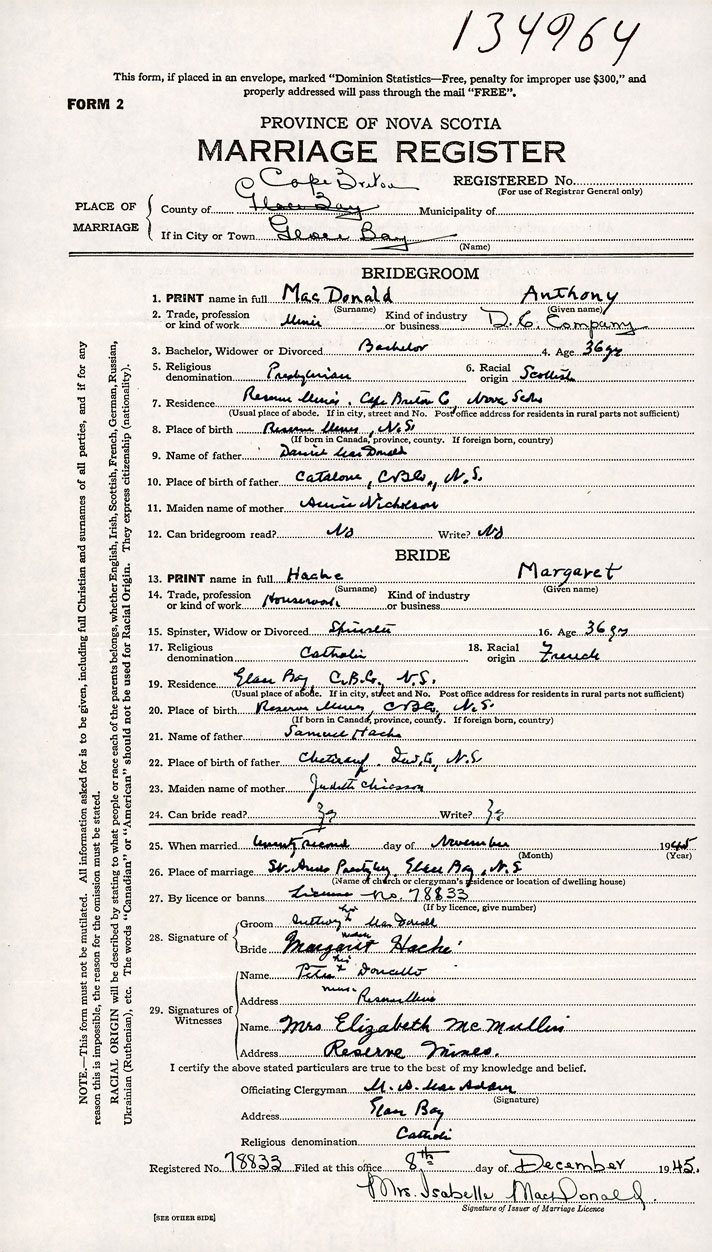 134964
This form, if placed in an envelope, marked "Dominion Statistics—Free, penalty for improper use $300," and
properly addressed will pass through the mail "FREE".
FORM 2
PROVINCE OF NOVA SCOTIA
MARRIAGE REGISTER
Cape Breton
REGISTERED No.
(For use of Registrar General only)
PLACE OF MARRIAGE
County of Glace Bay Municipality of
If in City or Town Glace Bay
(Name)
BRIDEGROOM
1. PRINT name in full MacDonald Anthony
(Surname) (Given name)
2. Trade, profession or kind of work Miner Kind of industry or business D. C. Company
3. Bachelor, Widower or Divorced Bachelor 4. Age 36 yrs
5. Religious denomination Presbyterian 6. Racial origin Scottish
7. Residence Reserve Mines, Cape Breton Co, Nova Scotia
(Usual place of abode. If in city, street and No. Post office address for residents in rural parts not sufficient)
8. Place of birth Reserve Mines, N.S.
(If born in Canada, province, county. If foreign born, country)
9. Name of father Daniel MacDonald
10. Place of birth of father Catalone, C.B.Co., N.S.
11. Maiden name of mother Annie Nicholson
12. Can bridegroom read? No Write? No
BRIDE
13. PRINT name in full Hache Margaret
(Surname) (Given name)
14. Trade, profession or kind of work Housework Kind of industry or business
15. Spinster, Widow or Divorced Spinster 16. Age 36 yrs
17. Religious denomination Catholic 18. Racial origin French
19. Residence Glace Bay, C.B.Co, N.S.
(Usual place of abode. If in city, street and No. Post office address for residents in rural parts not sufficient)
20. Place of birth Reserve Mines, C.B.Co, N.S.
(If born in Canada, province, county. If foreign born, country)
21. Name of father Samuel Hache
22. Place of birth of father Cheticamp, Inv. Co, N.S
23. Maiden name of mother Judith
24. Can bride read? Yes Write? Yes
25. When married twenty second day of November 1945
(Month) (Year)
26. Place of marriage St. Annes Presbytery, Glace Bay, N.S
(Name of church or clergyman's residence or location of dwelling house)
27. By licence or banns License no. 78833
(If by licence, give number)
28. Signature of
Groom Anthony his x mark MacDonald
Bride Margaret Hache
29. Signatures of Witnesses
Name Peter his x mark
Address Reserve Mines
Name Mrs Elizabeth McMullin
Address Reserve Mines.
I certify the above stated particulars are true to the best of my knowledge and belief.
Officiating Clergyman M. A. MacAdam
(Signature)
Address Glace Bay
Religious denomination Catholic
Registered No. 78833 Filed at this office 8th day of December 1945.
Mrs. Isabelle MacDonald.
Signature of Issuer of Marriage Licence
[SEE OTHER SIDE]
NOTE.—This form must not be mutilated. All information asked for is to be given, including full Christian and surnames of all parties, and if for any
reason this is impossible, the reason for the omission must be stated.
RACIAL ORIGIN will be described by stating to what people or race each of the parents belongs, whether English, Irish, Scottish, French, German, Russian,
Ukrainian (Ruthenian), etc. The words "Canadian" or "American" should not be used for Racial Origin. They express citizenship (nationality).